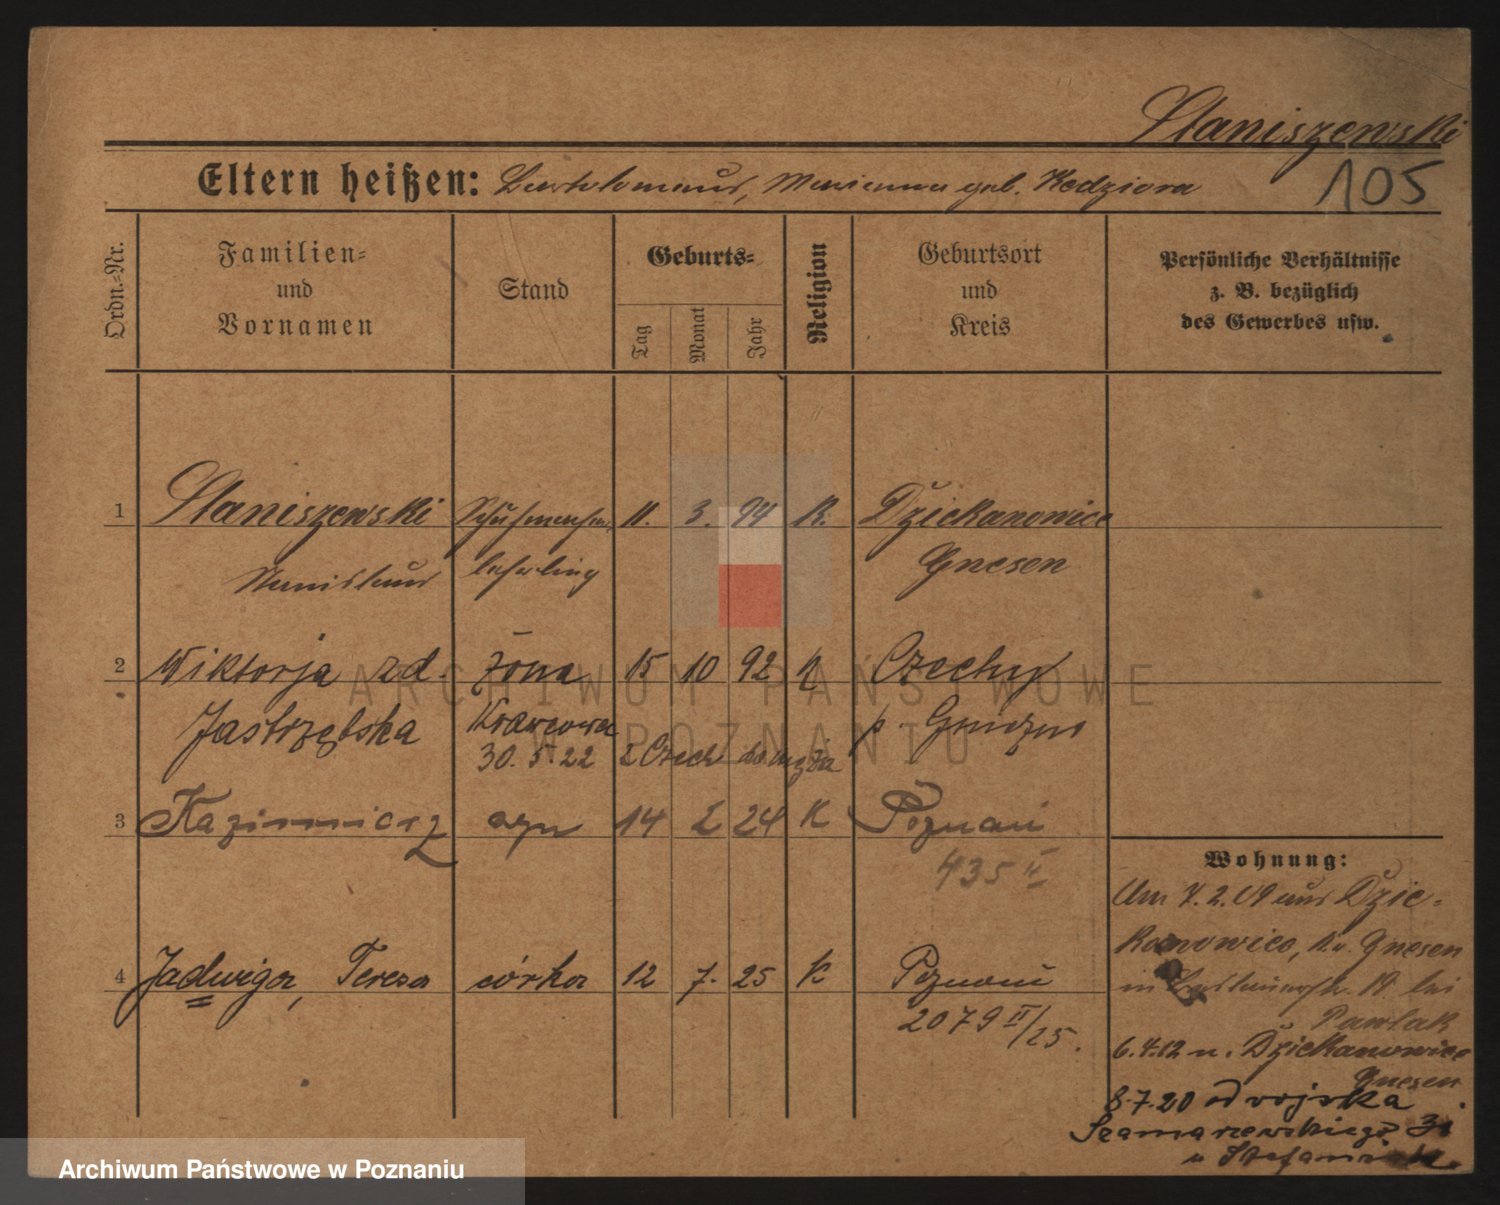 Staniszewski
105
Eltern heißen: Bartolomeus, Marianna geb. Kedziora
Ordn.-Nr.
Familien- und Vornamen
Stand
Geburts-
Tag
Monat
Jahr
Religion
Geburtsort und Kreis
Persönliche Verhältnisse
z. B. bezüglich
des Gewerbes usw.
1 Staniszewski Schuhmacher 11. 3. 94 K. Dziekanowice
Stanislaus lehrling Gnesen
2 Wiktorja zd. żona 15 10 92 K Czechy
Jastrzębska Krawcowa p. Gniezno
30.5.22 z Czech do męża
3 Kazimierz syn 14 2 24 K Poznań
435 II
4 Jadwiga, Teresa córka 12 7. 25 K Poznań
2079 II/25.
Wohnung:
Am 7.2.09 aus Dzie-
kanowice, Kr. Gnesen
in 19. bei
Pawlak
6.4.12 n. Dziekanowice
Gnesen
8.7.20 od wojska
Szamarzewskiego 31
u Stefaniak
ARCHIWUM PAŃSTWOWE
W POZNANIU
Archiwum Państwowe w Poznaniu